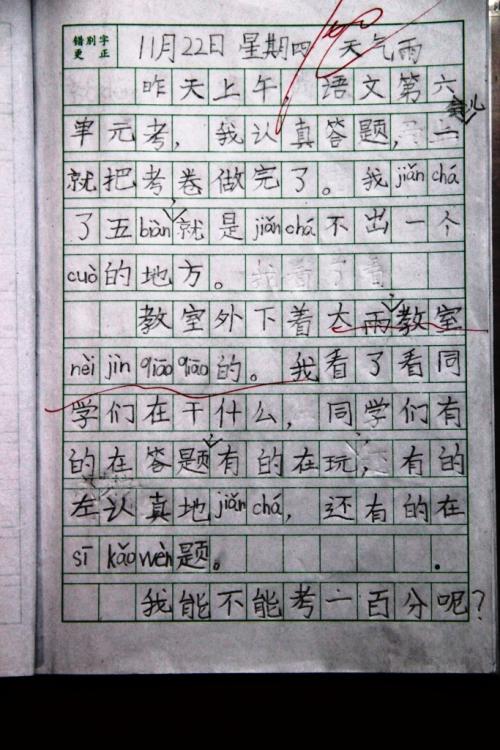 错别字
更正
11月22日 星期四 天气雨
昨天上午,语文第六
单元考,我认真答题,一会儿
就把考卷做完了。我jiǎn chá
了五biàn,就是jiǎn chá不出一个
cuò的地方。
教室外下着大雨,教室
nèi jìn qiāo qiāo的。我看了看同
学们在干什么,同学们有
的在答题,有的在玩,有的
在认真地jiǎn chá,还有的在
sī kǎo wèn题。
我能不能考一百分呢?